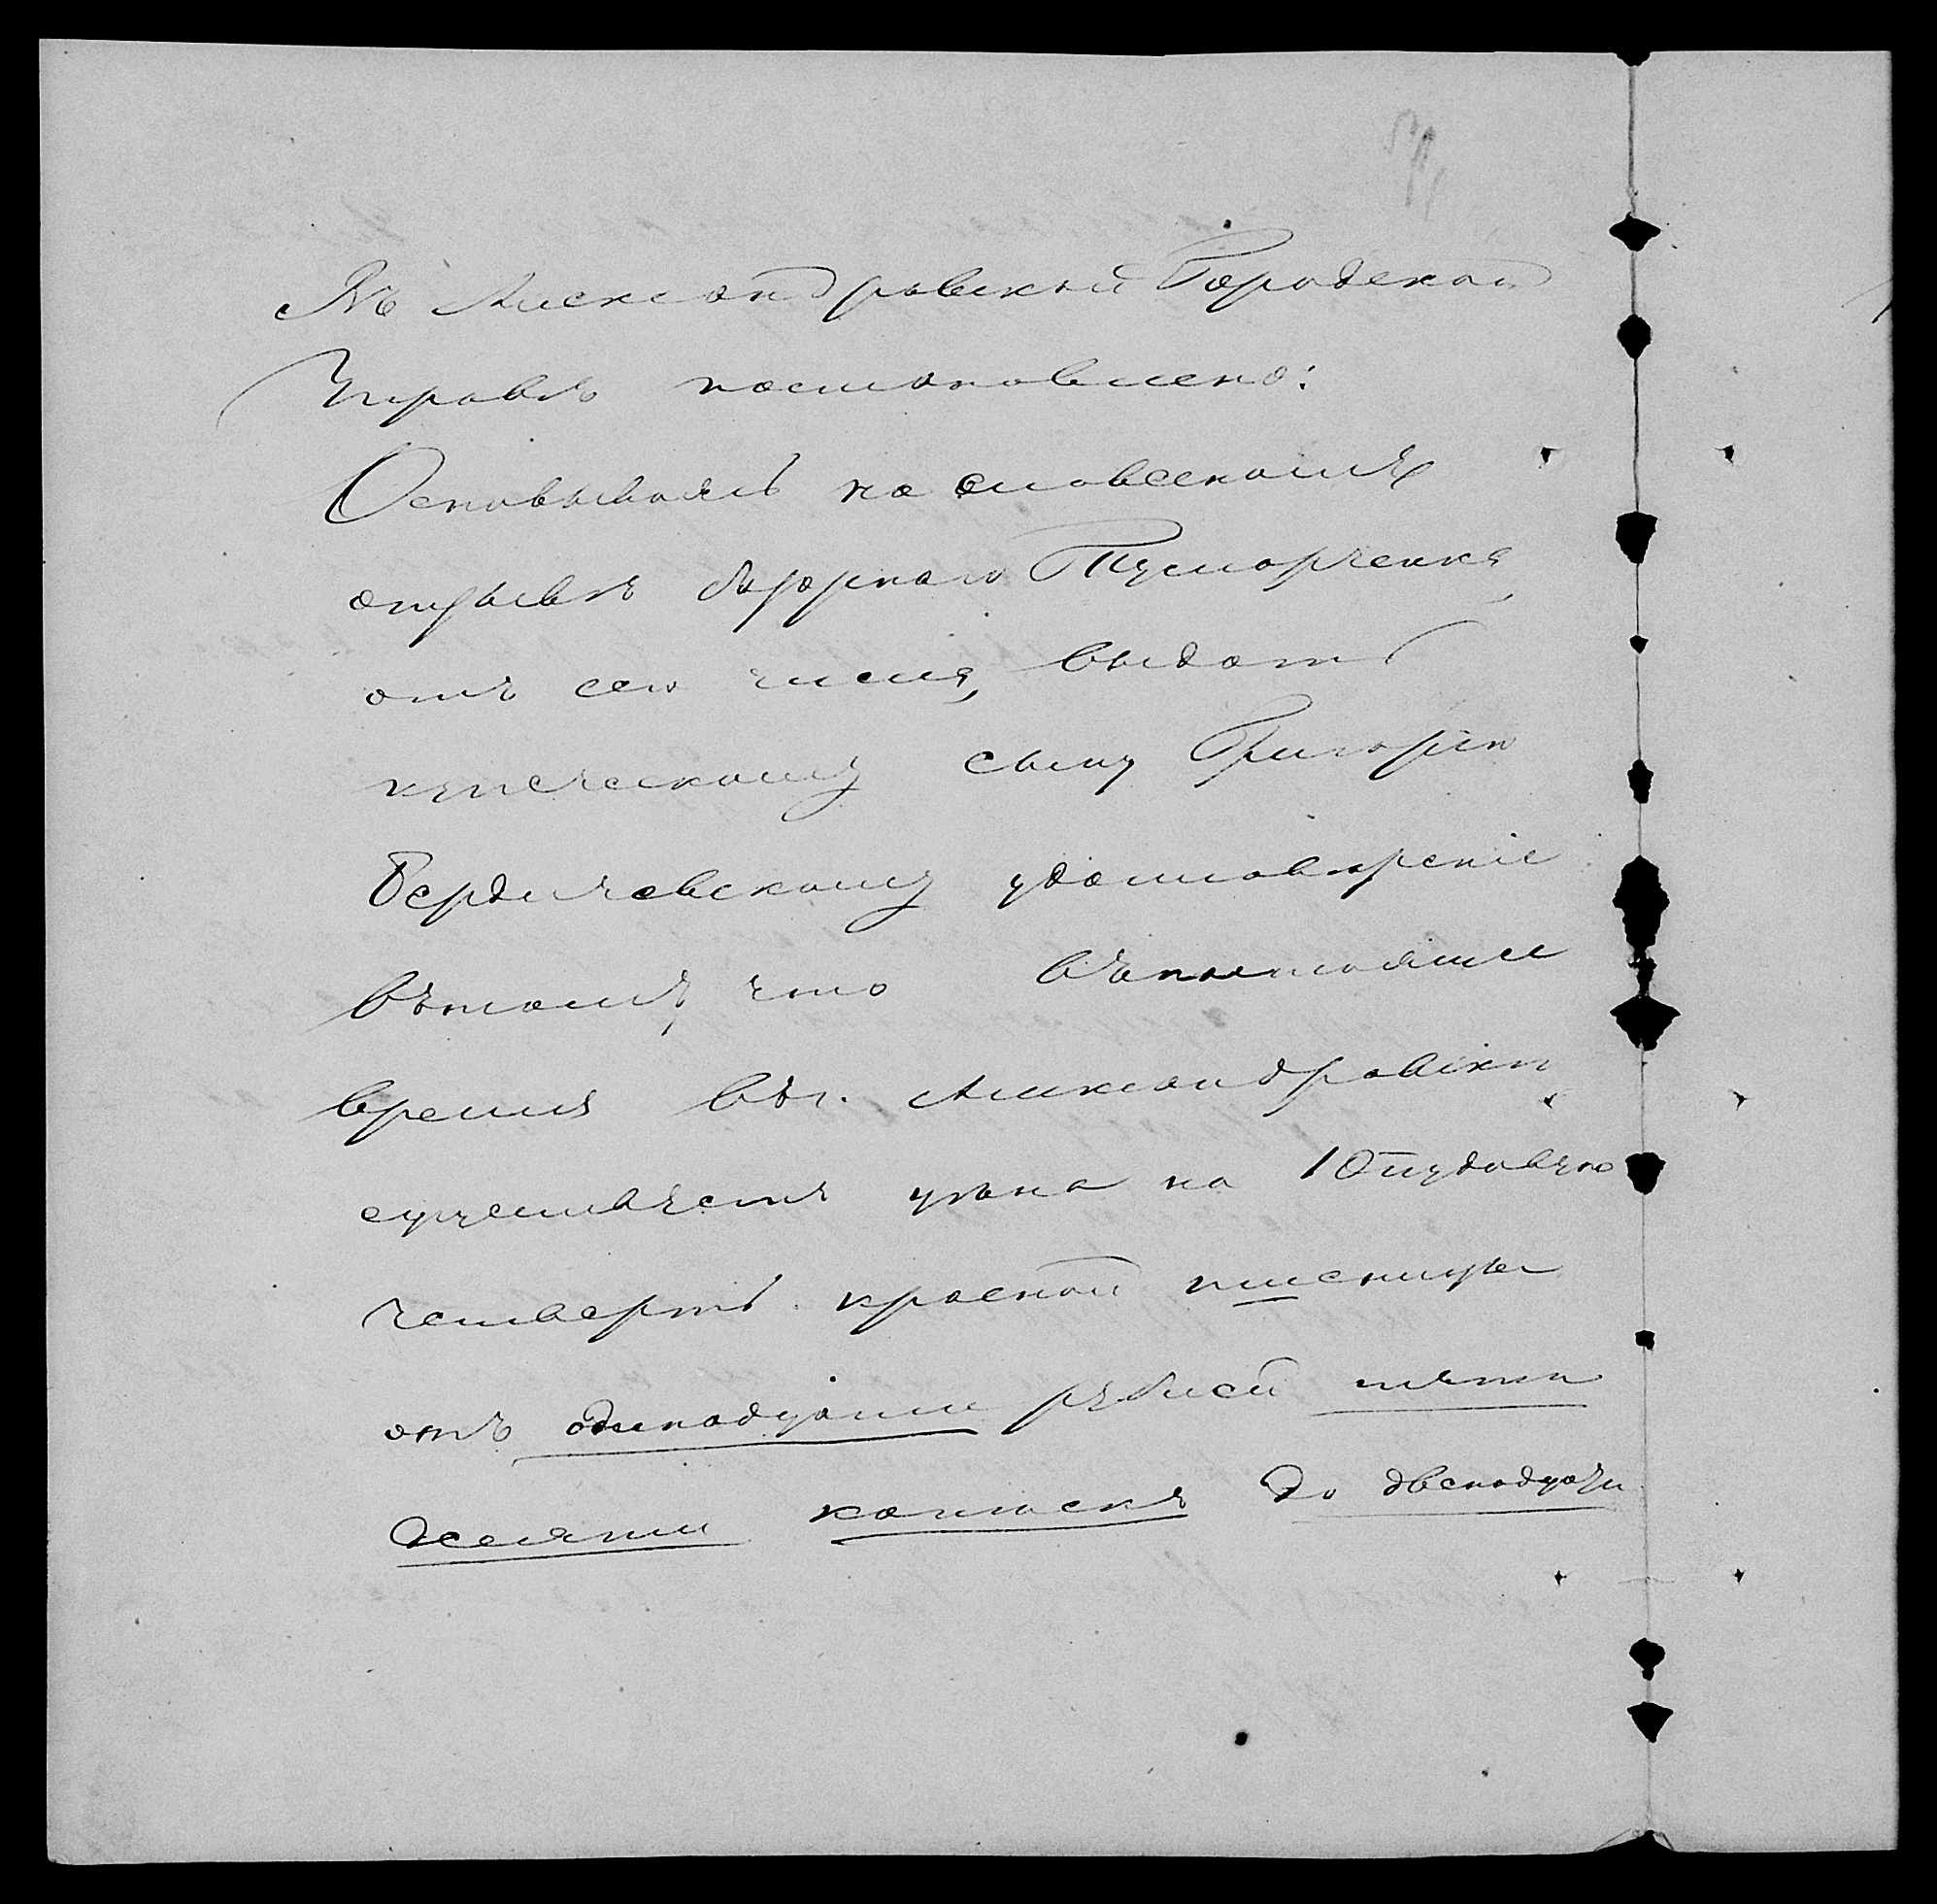 Въ Александровской Городской
Управѣ постановлено:
Основываясь на словесномъ
отзывѣ
отъ сего числа, выдать
купеческому сыну Григорію
Бердичевскому удостовѣреніе
вътомъ, что внастоящее
время въ г. Александровскѣ
существуетъ цѣна на 10 пудовую
четверть красной пшеницы
отъ одинадцати рублей пяти
десяти копѣекъ до двенадцати